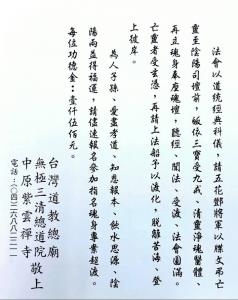 法會以道統經典科儀，請五花鄧將軍以牒文弔亡
靈至陰陽司壇前，皈依三寶受九戒、清靈淨魂醫體、
再立魂身奉座魂壇，聽經、聞法、受渡、法會圓滿。
亡靈者受玄憑，再請上法船予以渡化，脫離苦海、登
上彼岸。
為人子孫、愛盡孝道、知恩報本、飲水思源，陰
陽兩益得福運，請儘速報名參加指名魂身專案超渡。
每位功德金：壹仟伍佰元。
台灣道教總廟
無極三清總道院 敬上
中原紫雲禪寺